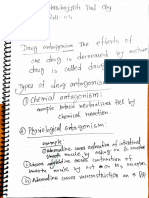 Drug antagonism The effects of
one drug is decreased by another
drug is called drug
Types of drug antagonism
① Chemical antagonism:
simple antacid neutralizes HCl by
chemical reaction.
② Physiological antagonism
example:
① Adrenaline causes relaxation of intestinal
smooth muscle by acting on β
causes contraction of
muscle by act on M3
② Adrenaline causes vasoconstriction on